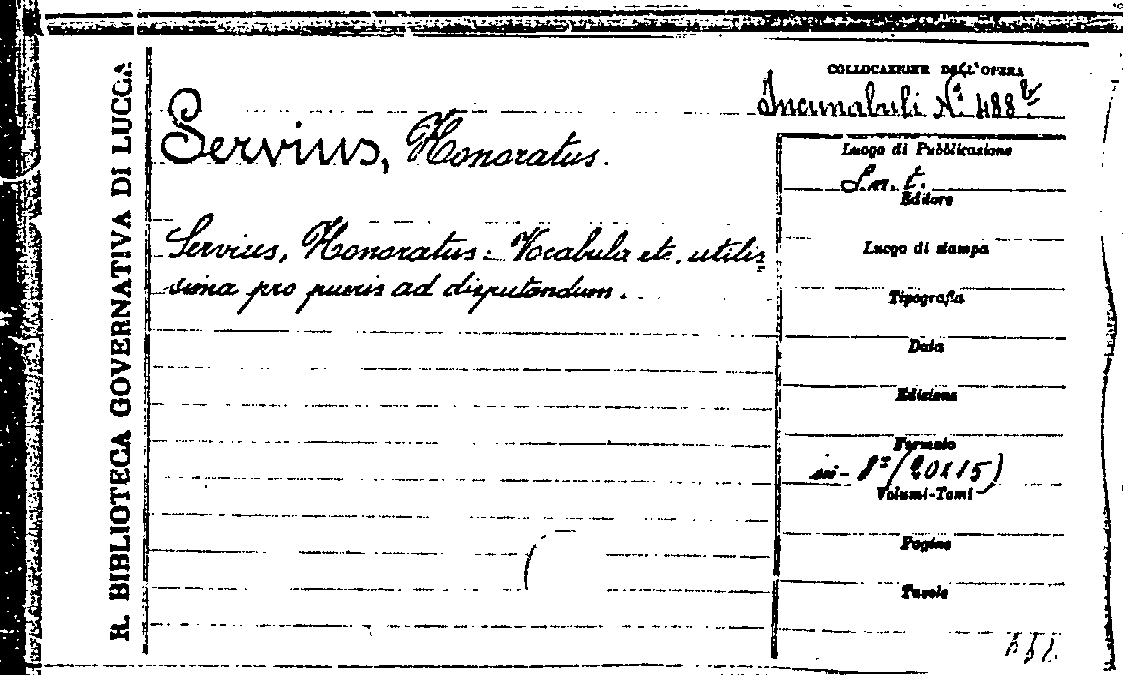 R. BIBLIOTECA GOVERNATIVA DI LUCCA
COLLOCAZIONE DELL'OPERA
Incunabuli N.º 488
Servius, Honoratus.
Servius, Honoratus. Vocabula etc. utilis=
sima pro pueris ad disputandum.
Luogo di Pubblicazione
S. n. t.
Editore
Luogo di stampa
Tipografia
Data
Edizione
Formato
in-8º (20x15)
Volumi-Tomi
Pagine
Tavole